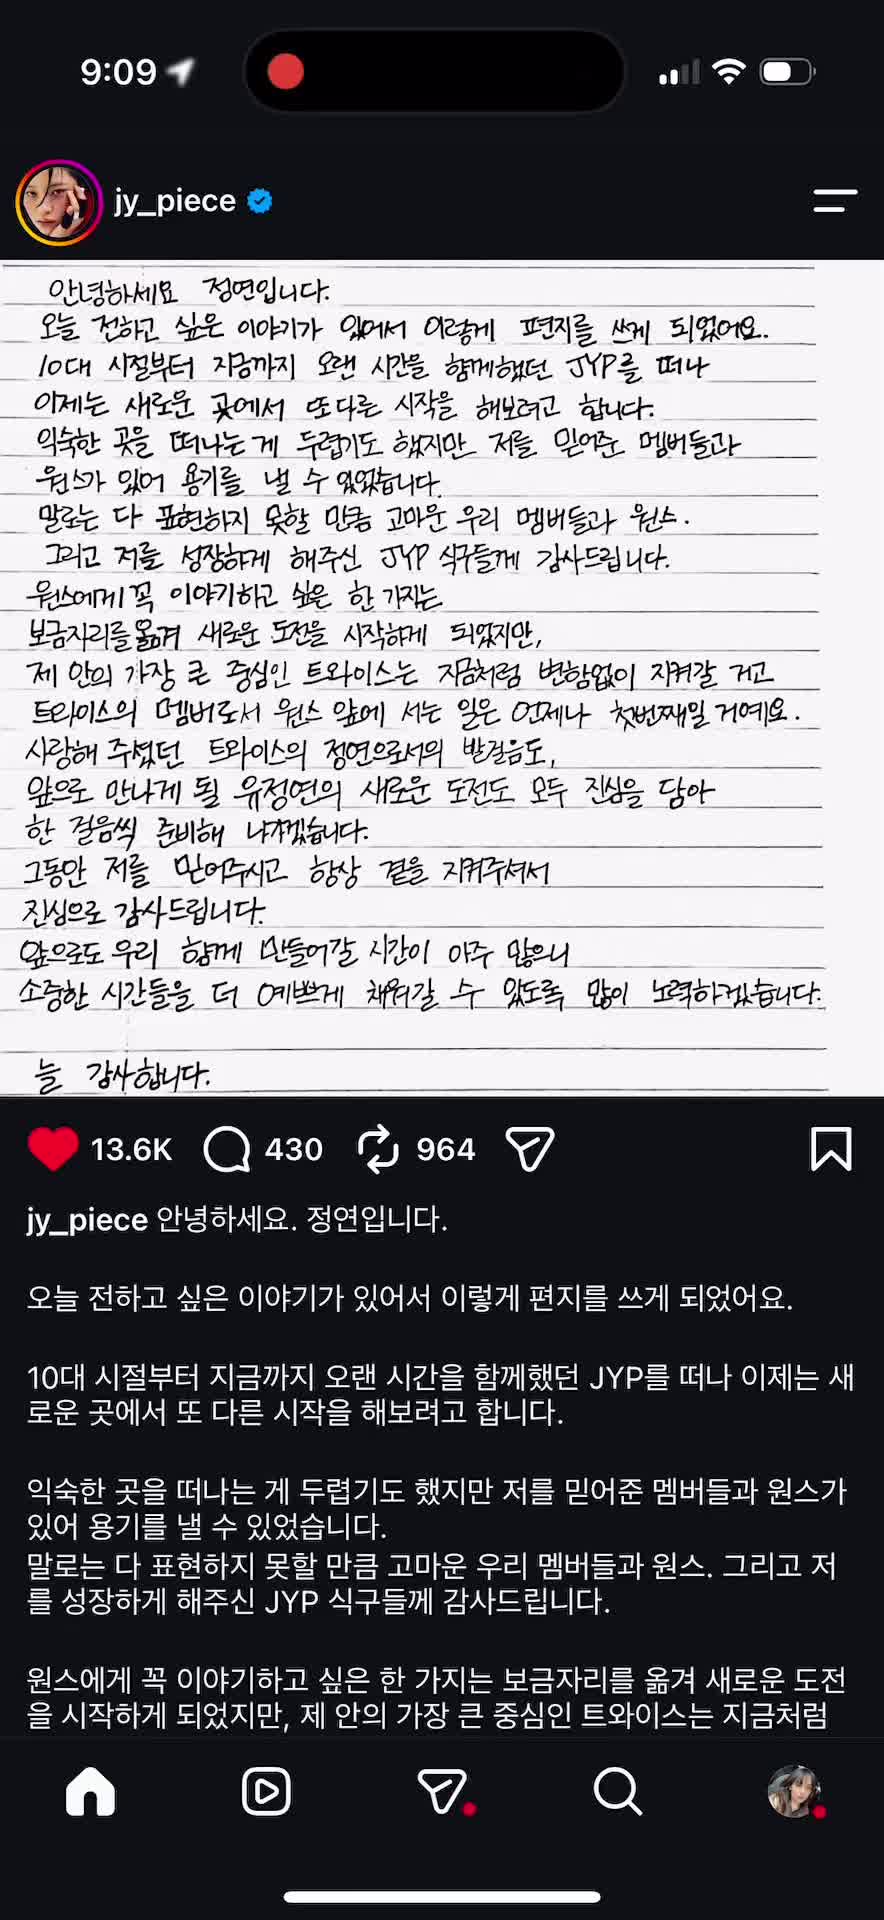 9:09
jy_piece
안녕하세요 정연입니다.
오늘 전하고 싶은 이야기가 있어서 이렇게 편지를 쓰게 되었어요.
10대 시절부터 지금까지 오랜 시간을 함께했던 JYP를 떠나
이제는 새로운 곳에서 또 다른 시작을 해보려고 합니다.
익숙한 곳을 떠나는 게 두렵기도 했지만 저를 믿어준 멤버들과
원스가 있어 용기를 낼 수 있었습니다.
말로는 다 표현하지 못할 만큼 고마운 우리 멤버들과 원스.
그리고 저를 성장하게 해주신 JYP 식구들께 감사드립니다.
원스에게 꼭 이야기하고 싶은 한 가지는
보금자리를 옮겨 새로운 도전을 시작하게 되었지만,
제 안의 가장 큰 중심인 트와이스는 지금처럼 변함없이 지켜갈 거고
트와이스의 멤버로서 원스 앞에 서는 일은 언제나 첫번째일 거예요.
사랑해 주셨던 트와이스의 정연으로서의 발걸음도,
앞으로 만나게 될 유정연의 새로운 도전도 모두 진심을 담아
한 걸음씩 준비해 나가겠습니다.
그동안 저를 믿어주시고 항상 곁을 지켜주셔서
진심으로 감사드립니다.
앞으로도 우리 함께 만들어갈 시간이 아주 많으니
소중한 시간들을 더 예쁘게 채워갈 수 있도록 많이 노력하겠습니다.
늘 감사합니다.
13.6K 430 964
jy_piece 안녕하세요. 정연입니다.
오늘 전하고 싶은 이야기가 있어서 이렇게 편지를 쓰게 되었어요.
10대 시절부터 지금까지 오랜 시간을 함께했던 JYP를 떠나 이제는 새
로운 곳에서 또 다른 시작을 해보려고 합니다.
익숙한 곳을 떠나는 게 두렵기도 했지만 저를 믿어준 멤버들과 원스가
있어 용기를 낼 수 있었습니다.
말로는 다 표현하지 못할 만큼 고마운 우리 멤버들과 원스. 그리고 저
를 성장하게 해주신 JYP 식구들께 감사드립니다.
원스에게 꼭 이야기하고 싶은 한 가지는 보금자리를 옮겨 새로운 도전
을 시작하게 되었지만, 제 안의 가장 큰 중심인 트와이스는 지금처럼